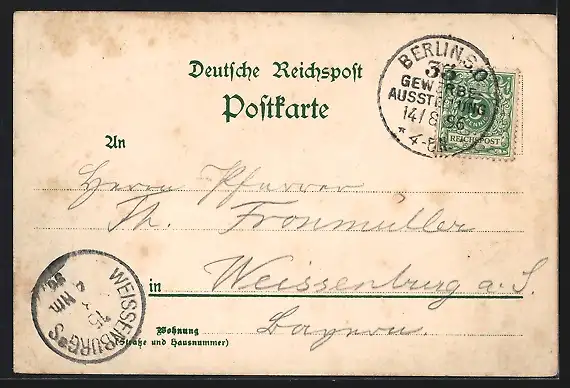 Deutsche Reichspost
Postkarte
BERLIN S.O
33
GEWERBE
AUSSTELLUNG
14/8 96
REICHSPOST
An
Herrn Pfarrer
Th. Fronmüller
in Weissenburg a. S.
Bayern.
Wohnung
(Straße und Hausnummer)
WEISSENBURG a/S.
15